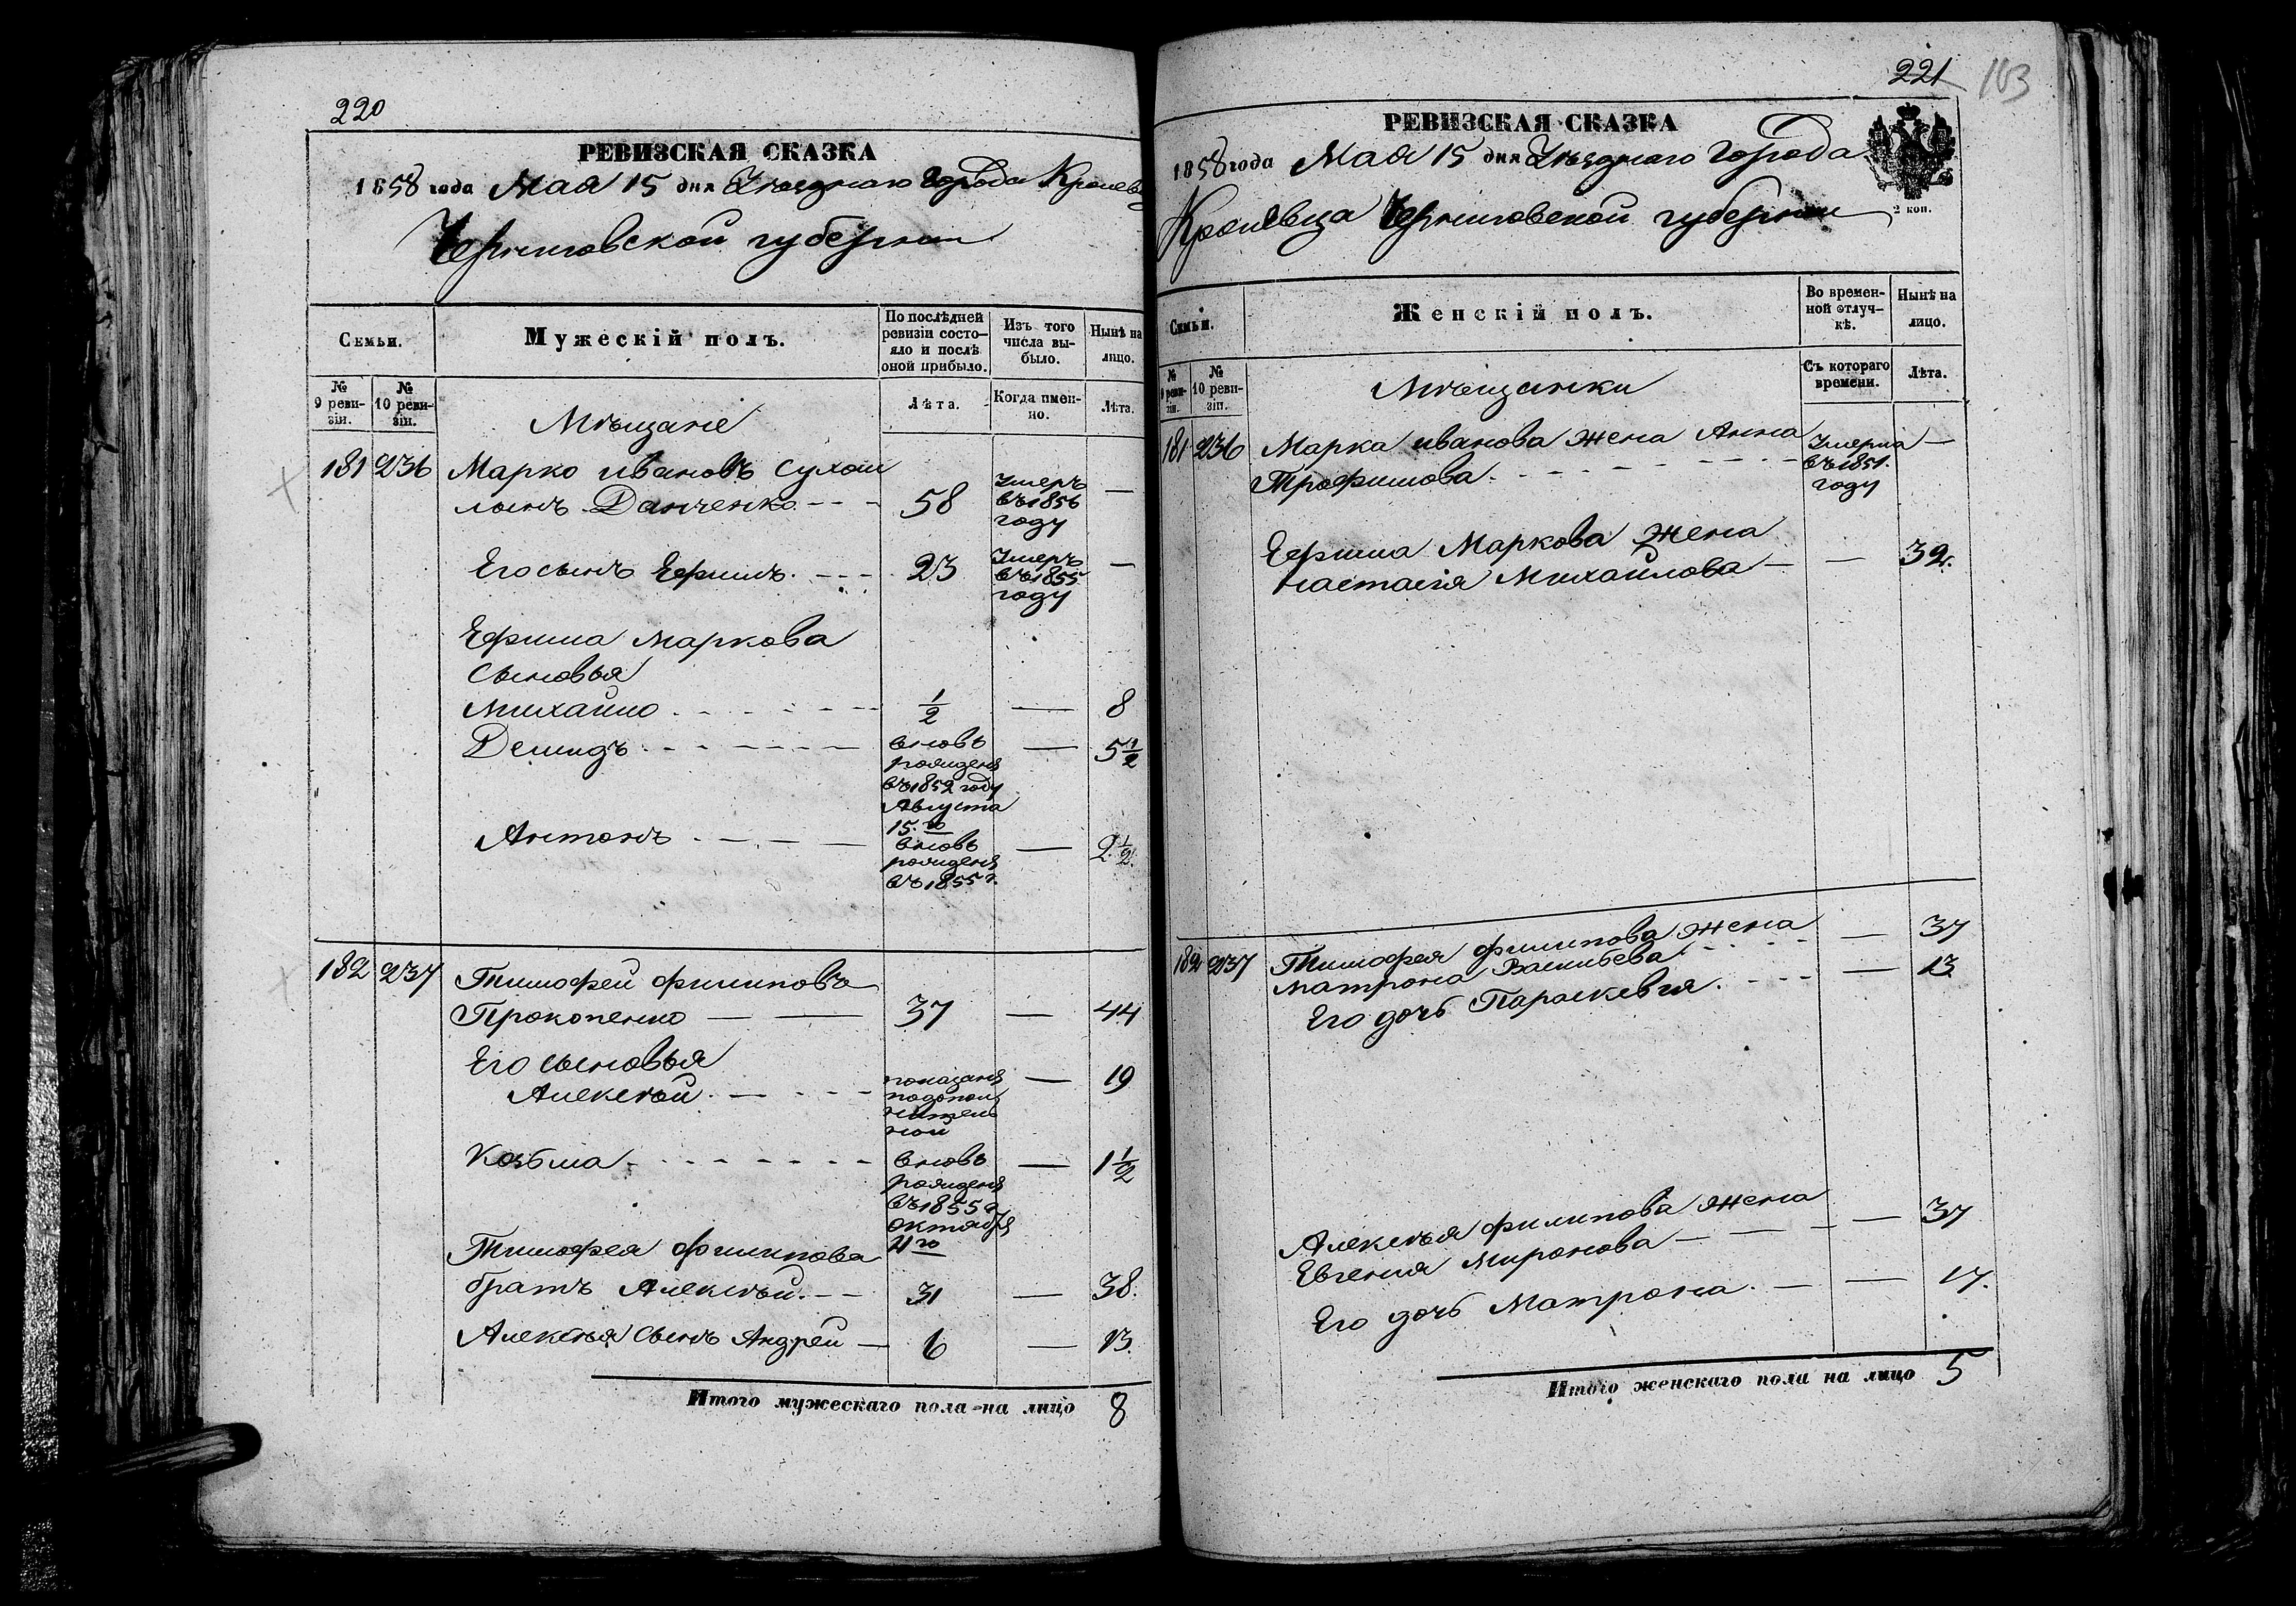 220
РЕВИЗСКАЯ СКАЗКА
1858 года Мая 15 дня Уѣзднаго Города Кролевца
Черниговской губернии
Семьи.
Мужескій полъ.
По послѣдней ревизіи состо-
яло и послѣ
оной прибыло.
Изъ того
числа вы-
было.
Нынѣ на
лицо.
№
9 реви-
зіи.
№
10 реви-
зіи.
Лѣта.
Когда имен-
но.
Лѣта.
Мѣщане
181 236 Марко ивановъ сухом
Данченко 58 Умеръ въ 1856 году —
Его сынъ Ефимъ 23 Умеръ въ 1855 году —
Ефима Маркова
Сыновья
Михайло 1/2 — 8
Демидъ вновь — 5 1/2
рожденъ
въ 1852 году
Августа
15.го
Антонъ вновь — 2 1/2
рожденъ
въ 1855 г.
182 237 Тимофей филиповъ
Прокопенко 37 — 44
Его сыновья
Алексѣй показанъ — 19
по дополнительной
Козьма вновь — 1 1/2
рожденъ
въ 1855 г.
октября
Тимофея филипова
братъ Алексѣй 31 — 38.
Алексѣя сынъ Андрей 6 — 13.
Итого мужескаго пола на лицо 8
221
103
РЕВИЗСКАЯ СКАЗКА
1858 года Мая 15 дня Уѣзднаго Города
Кролевца Черниговской губернии
2 коп.
Семьи.
Женскій полъ.
Во времен-
ной отлуч-
кѣ.
Нынѣ на
лицо.
№
9 реви-
зіи.
№
10 реви-
зіи.
Съ котораго
времени.
Лѣта.
Мѣщанки
181 236 Марка иванова жена Анна Умерла —
Трофимова въ 1851.
году
Ефима Маркова жена
настасія Михайлова — 32.
182 237 Тимофея филипова жена — 37
матрона Васильева
Его дочь Параскевія — 13
Алексѣя филипова жена — 37
Евгения Миронова
Его дочь Матрона — 17.
Итого женскаго пола на лицо 5